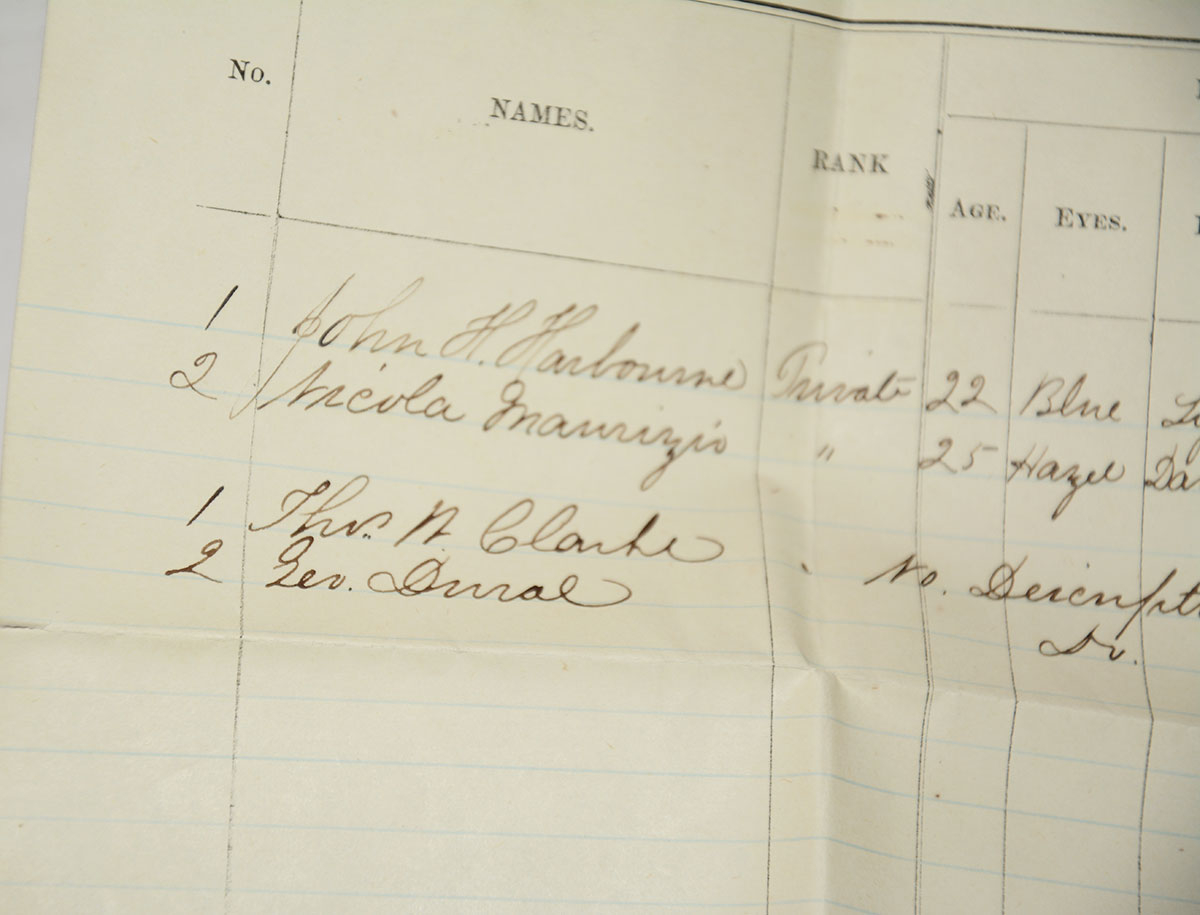 No. NAMES. RANK AGE. EYES.
1 John H. Harbourne Private 22 Blue
2 Nicola Maurizio " 25 Hazel Da
1 Thos. N. Clarke No. Descript
2 Geo. Duval Do.